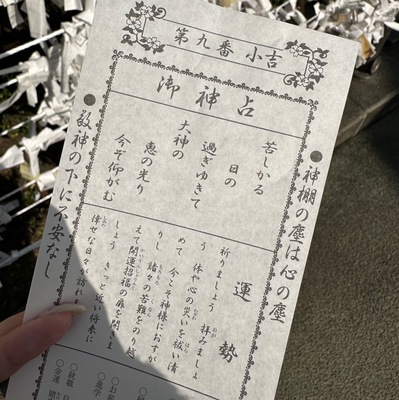 第九番 小吉
御神占
苦しかる
日の
過ぎゆきて
大神の
恵の光り
今ぞ仰がむ
運勢
祈りましょう 拝みましょ
う 体や心の災いを祓い清
めて 今こそ神様におすが
りし 諸々の苦難をのり越
えて開運招福の扉を開きま
しょう きっと近い将来に
倖せな日々が訪れ
●神棚の塵は心の塵
●教神の下に不安なし